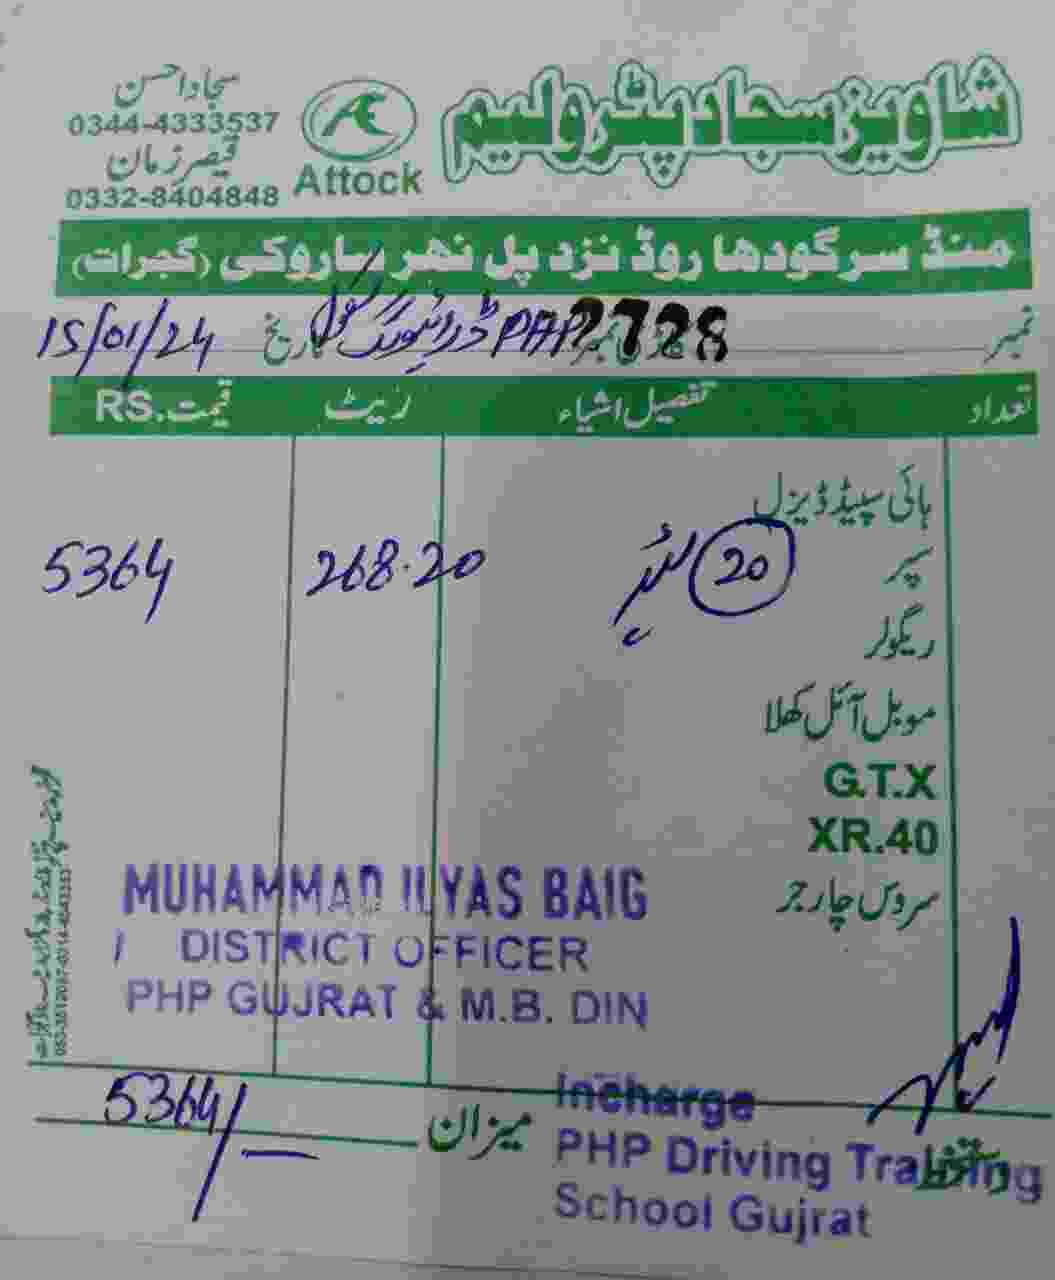 شاویز سجاد پٹرولیم
Attock
سجاد احسن
0344-4333537
قیصر زمان
0332-8404848
منڈ سرگودھا روڈ نزد پل نہر ساروکی (گجرات)
نمبر 2728 PHP ڈرائیونگ سکول تاریخ 15/01/24
تعداد تفصیل اشیاء ریٹ قیمت .RS
ہائی سپیڈ ڈیزل
سپر 20 لیٹر 268.20 5364
ریگولر
موبل آئل کھلا
G.T.X
XR.40
سروس چارجز
MUHAMMAD ILYAS BAIG
DISTRICT OFFICER
PHP GUJRAT & M.B. DIN
میزان 5364/-
Incharge
PHP Driving Training
School Gujrat
دستخط